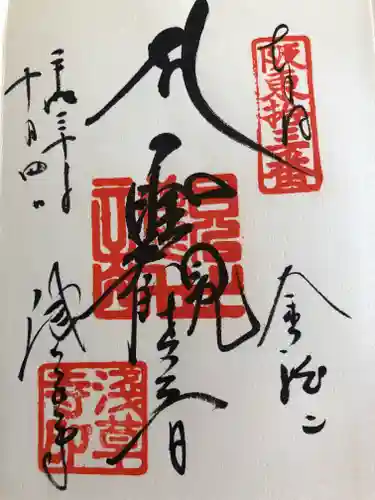 奉拝
阪東拾三番
聖観世音
金龍山
浅草寺
浅草寺印
平成三十年
十月四日